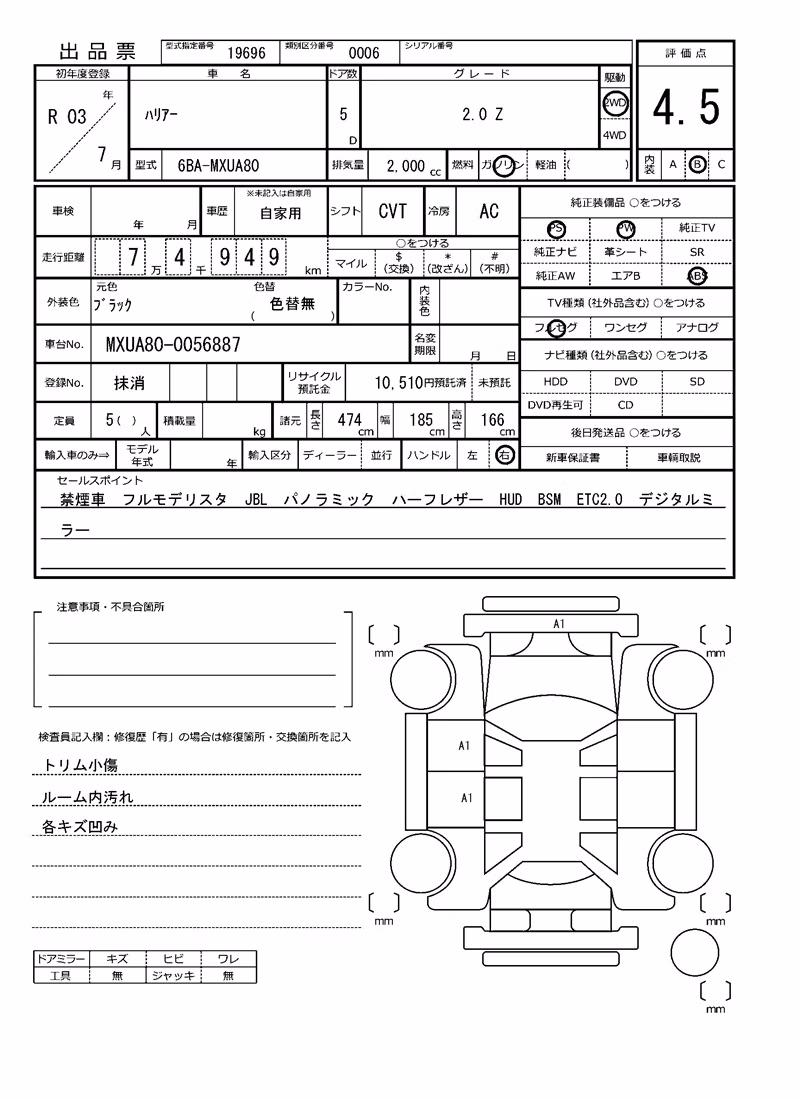 出品票
型式指定番号 19696 類別区分番号 0006 シリアル番号
評価点
初年度登録 車名 ドア数 グレード 駆動
R 03 年 7月
ハリアー 5 D 2.0 Z 2WD 4WD
4.5
型式 6BA-MXUA80 排気量 2,000 cc 燃料 ガソリン 軽油 ( )
内装 A B C
車検 年 月 車歴 ※未記入は自家用 自家用 シフト CVT 冷房 AC
純正装備品 ○をつける
PS PW 純正TV
走行距離 7万 4千 949 km
○をつける
マイル $(交換) *(改ざん) #(不明)
純正ナビ 革シート SR
純正AW エアB ABS
外装色 元色 ブラック 色替 ( 色替無 ) カラーNo. 内装色
TV種類(社外品含む)○をつける
フルセグ ワンセグ アナログ
車台No. MXUA80-0056887 名変期限 月 日
ナビ種類(社外品含む)○をつける
登録No. 抹消 リサイクル預託金 10,510円預託済 未預託
HDD DVD SD
DVD再生可 CD
定員 5( )人 積載量 kg 諸元 長さ 474cm 幅 185cm 高さ 166cm
後日発送品 ○をつける
輸入車のみ⇒ モデル年式 年 輸入区分 ディーラー 並行 ハンドル 左 右
新車保証書 車輌取説
セールスポイント
禁煙車 フルモデリスタ JBL パノラミック ハーフレザー HUD BSM ETC2.0 デジタルミ
ラー
注意事項・不具合箇所
検査員記入欄:修復歴「有」の場合は修復箇所・交換箇所を記入
トリム小傷
ルーム内汚れ
各キズ凹み
ドアミラー キズ ヒビ ワレ
工具 無 ジャッキ 無
A1
[ ] mm [ ] mm
A1
A1
[ ] mm [ ] mm
[ ] mm